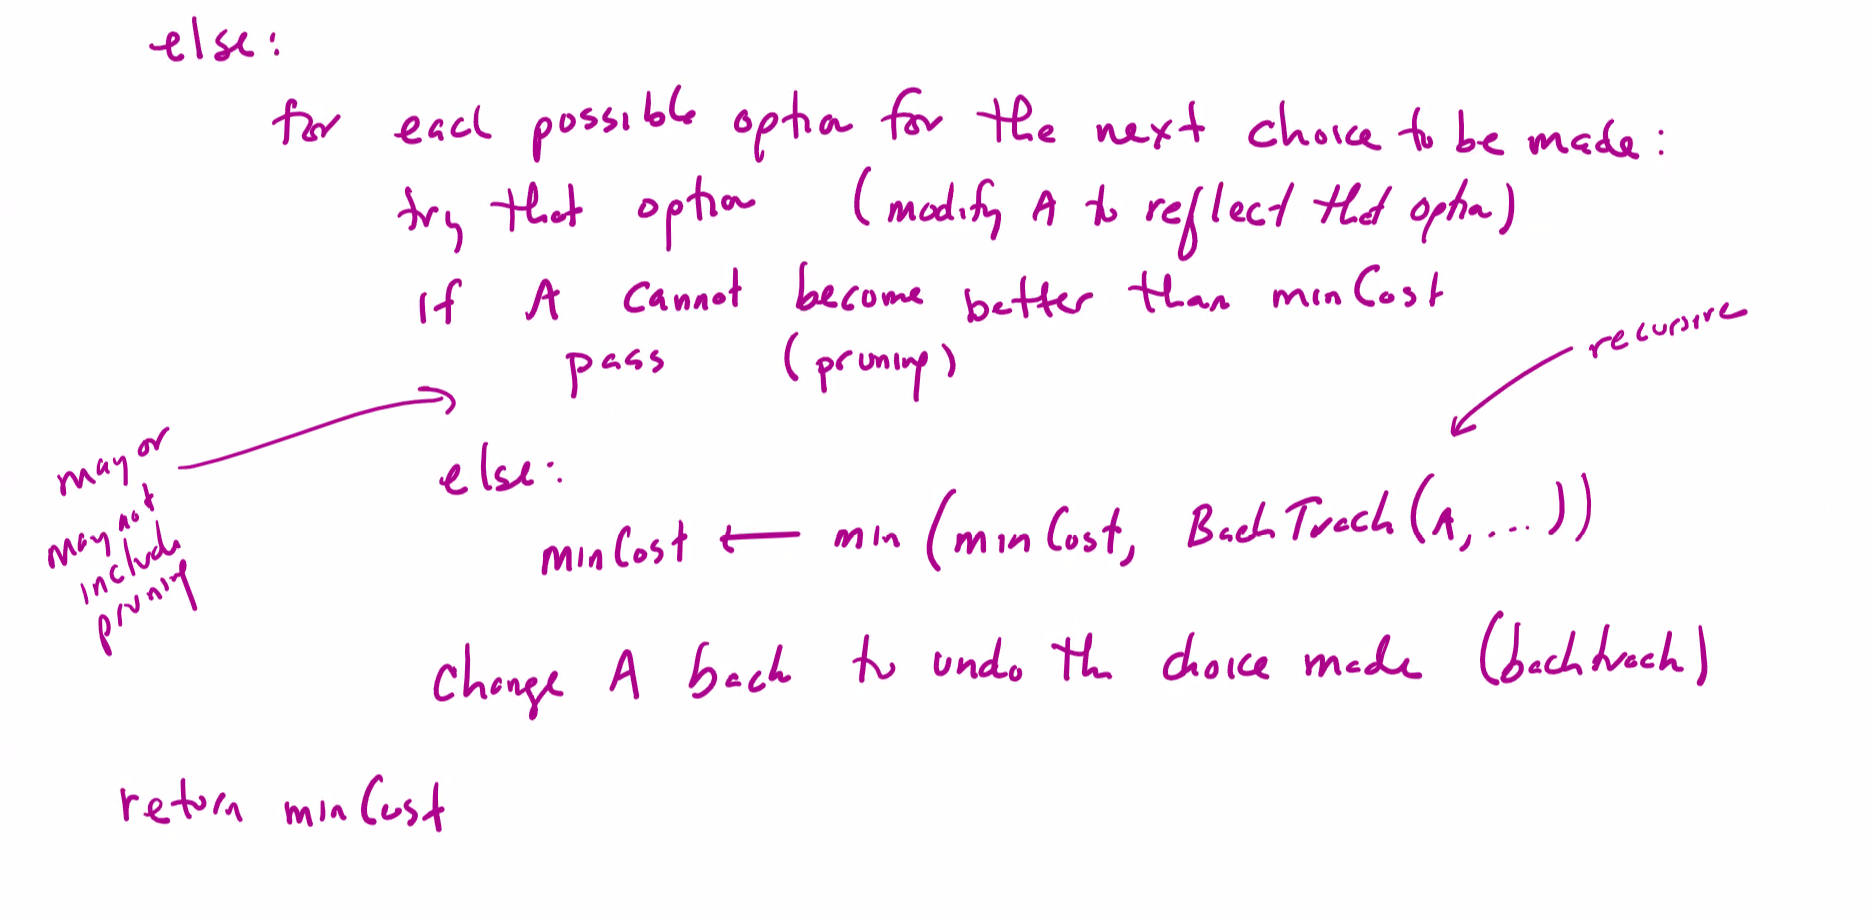 else:
for each possible option for the next choice to be made:
try that option (modify A to reflect that option)
if A cannot become better than minCost
pass (pruning)
recursive
may or
may not
include
pruning
else:
minCost ← min(minCost, BackTrack(A, ...))
change A back to undo the choice made (backtrack)
return minCost